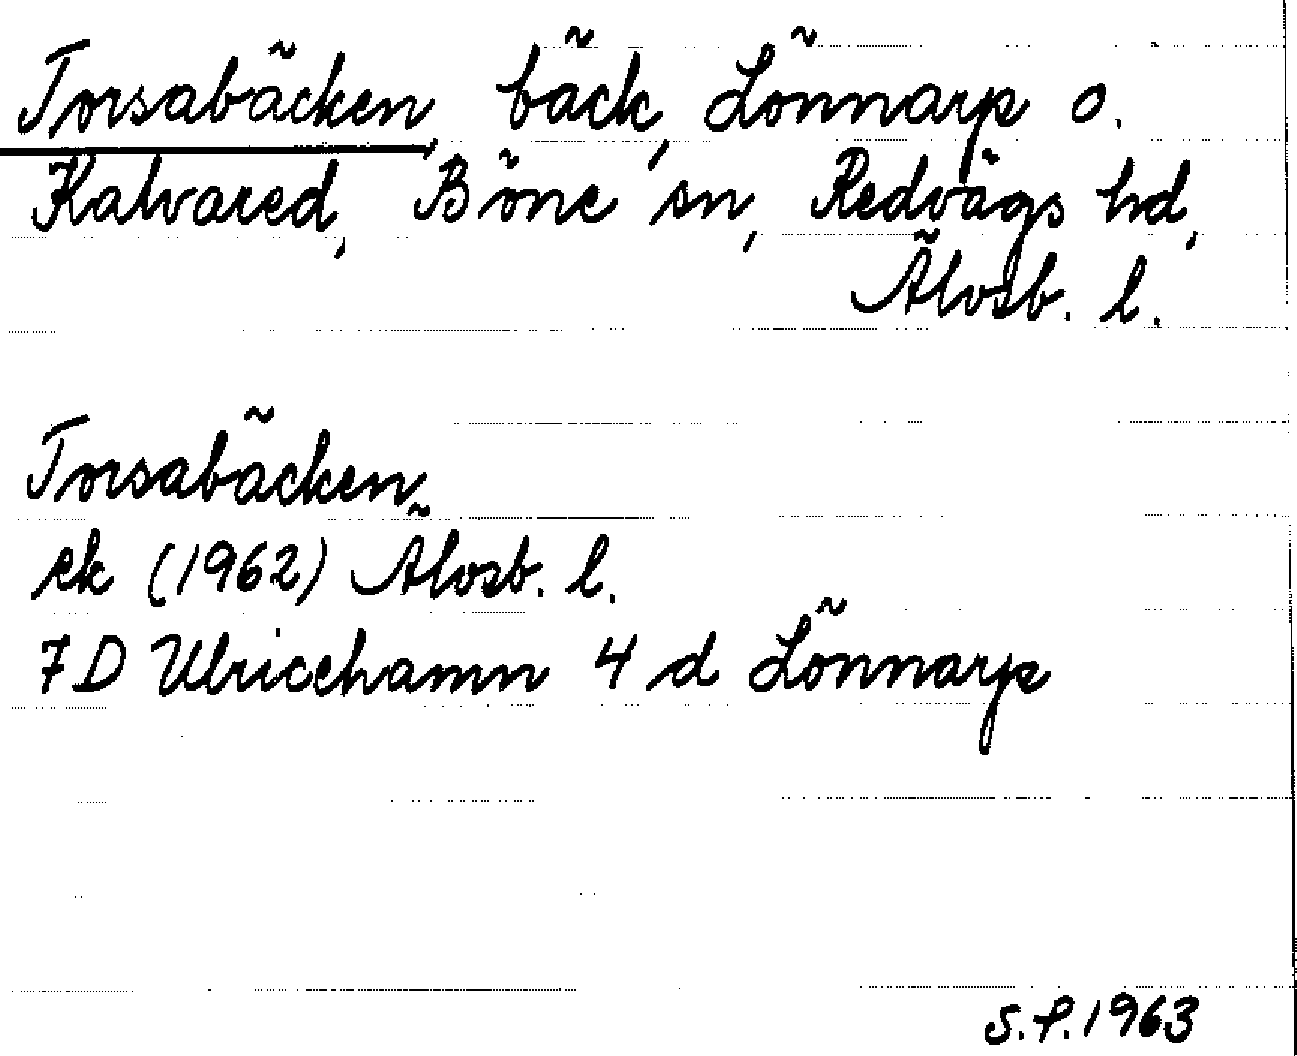 Torsabäcken, bäck, Lönnarp o.
Kalvared, Böne sn, Redvägs hd,
Älvsb. l.
Torsabäcken
ek (1962) Älvsb. l.
7 D Ulricehamn 4 d Lönnarp
S.P. 1963